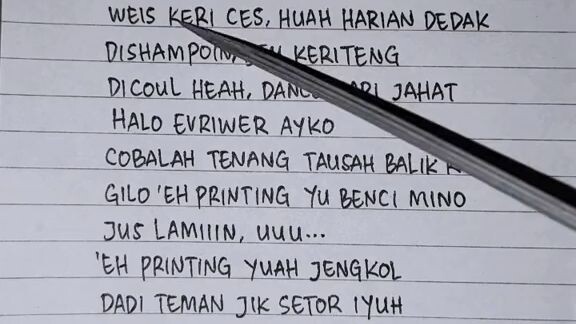 WEIS KERI CES, HUAH HARIAN DEDAK
KERITENG
DICOUL HEAH, JAHAT
HALO EVRIWER AYKO
COBALAH TENANG TAUSAH BALIK
GILO 'EH PRINTING YU BENCI MINO
JUS LAMIIIN, UUU...
'EH PRINTING YUAH JENGKOL
DADI TEMAN JIK SETOR IYUH